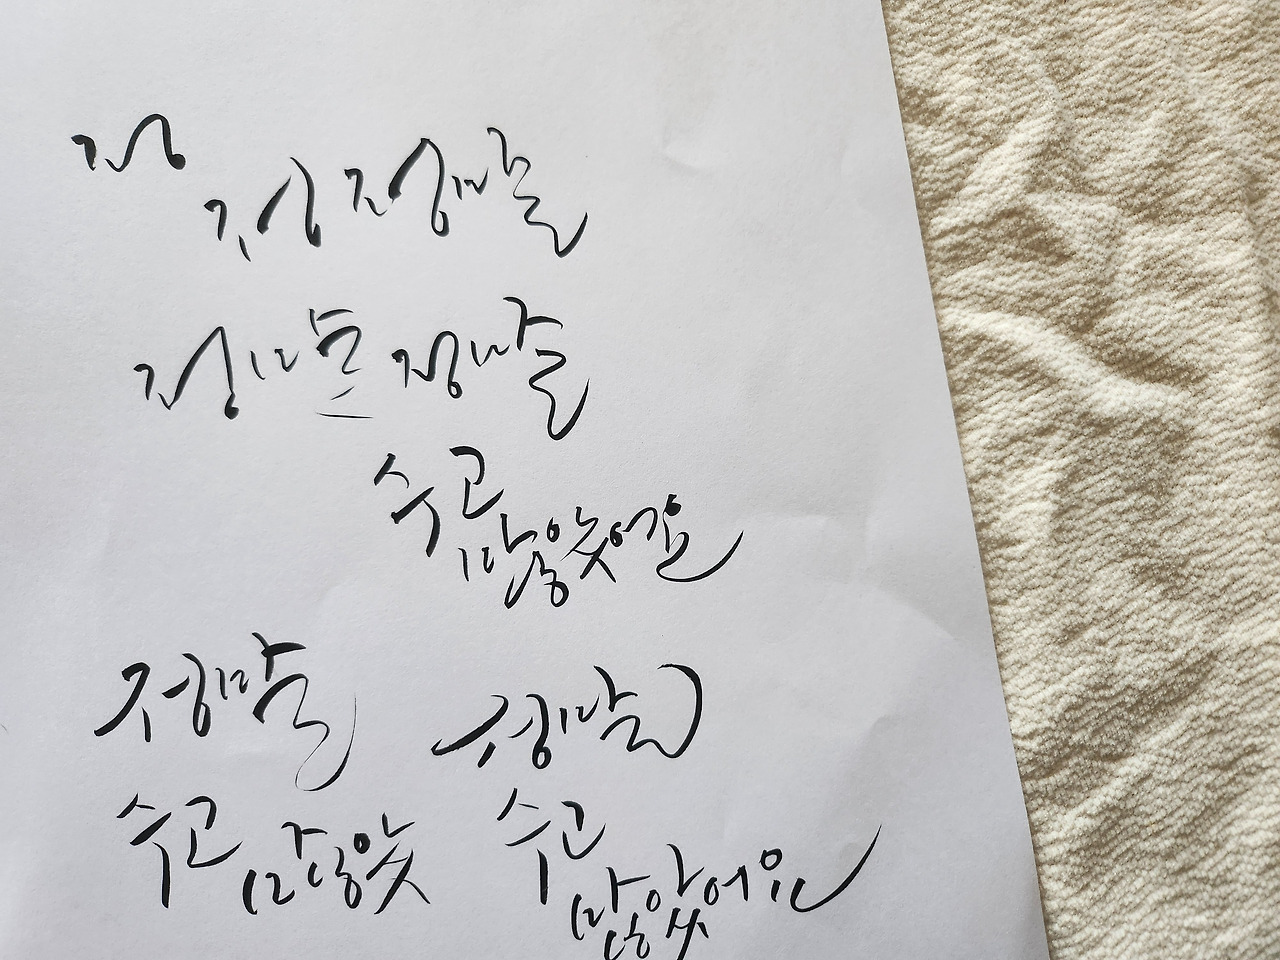 정
정 정말
정말 정말
수고
많았어요
정말 정말
수고 수고
많았 많았어요